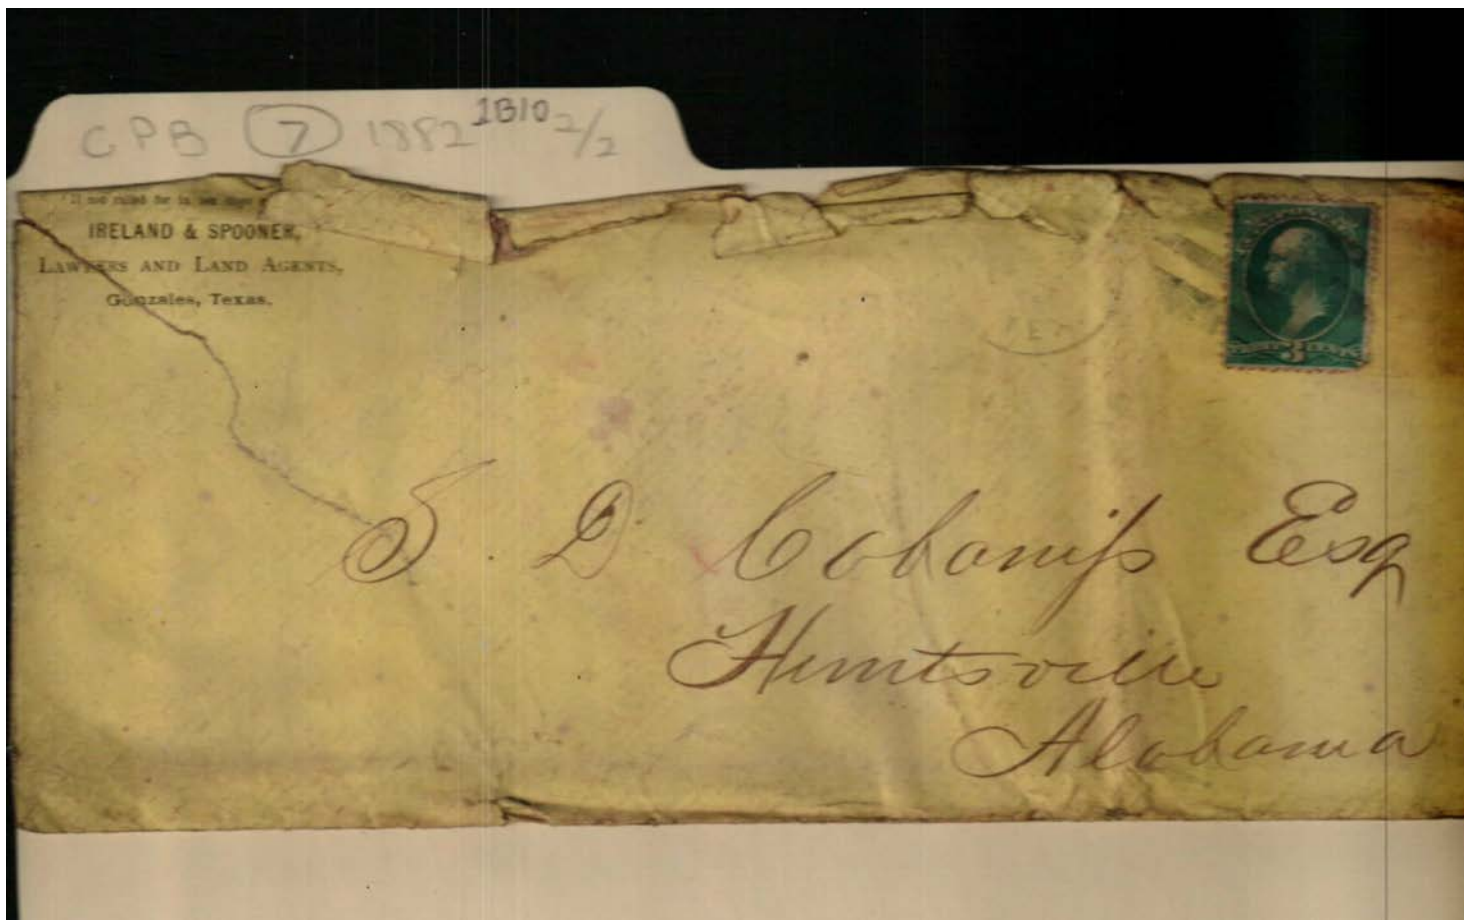 CPB 7 1882 1B10 2/2
If not called for in ten days
IRELAND & SPOONER,
LAWYERS AND LAND AGENTS,
Gonzales, Texas.
TEX
3
S. D. Cabaniss Esq
Huntsville
Alabama